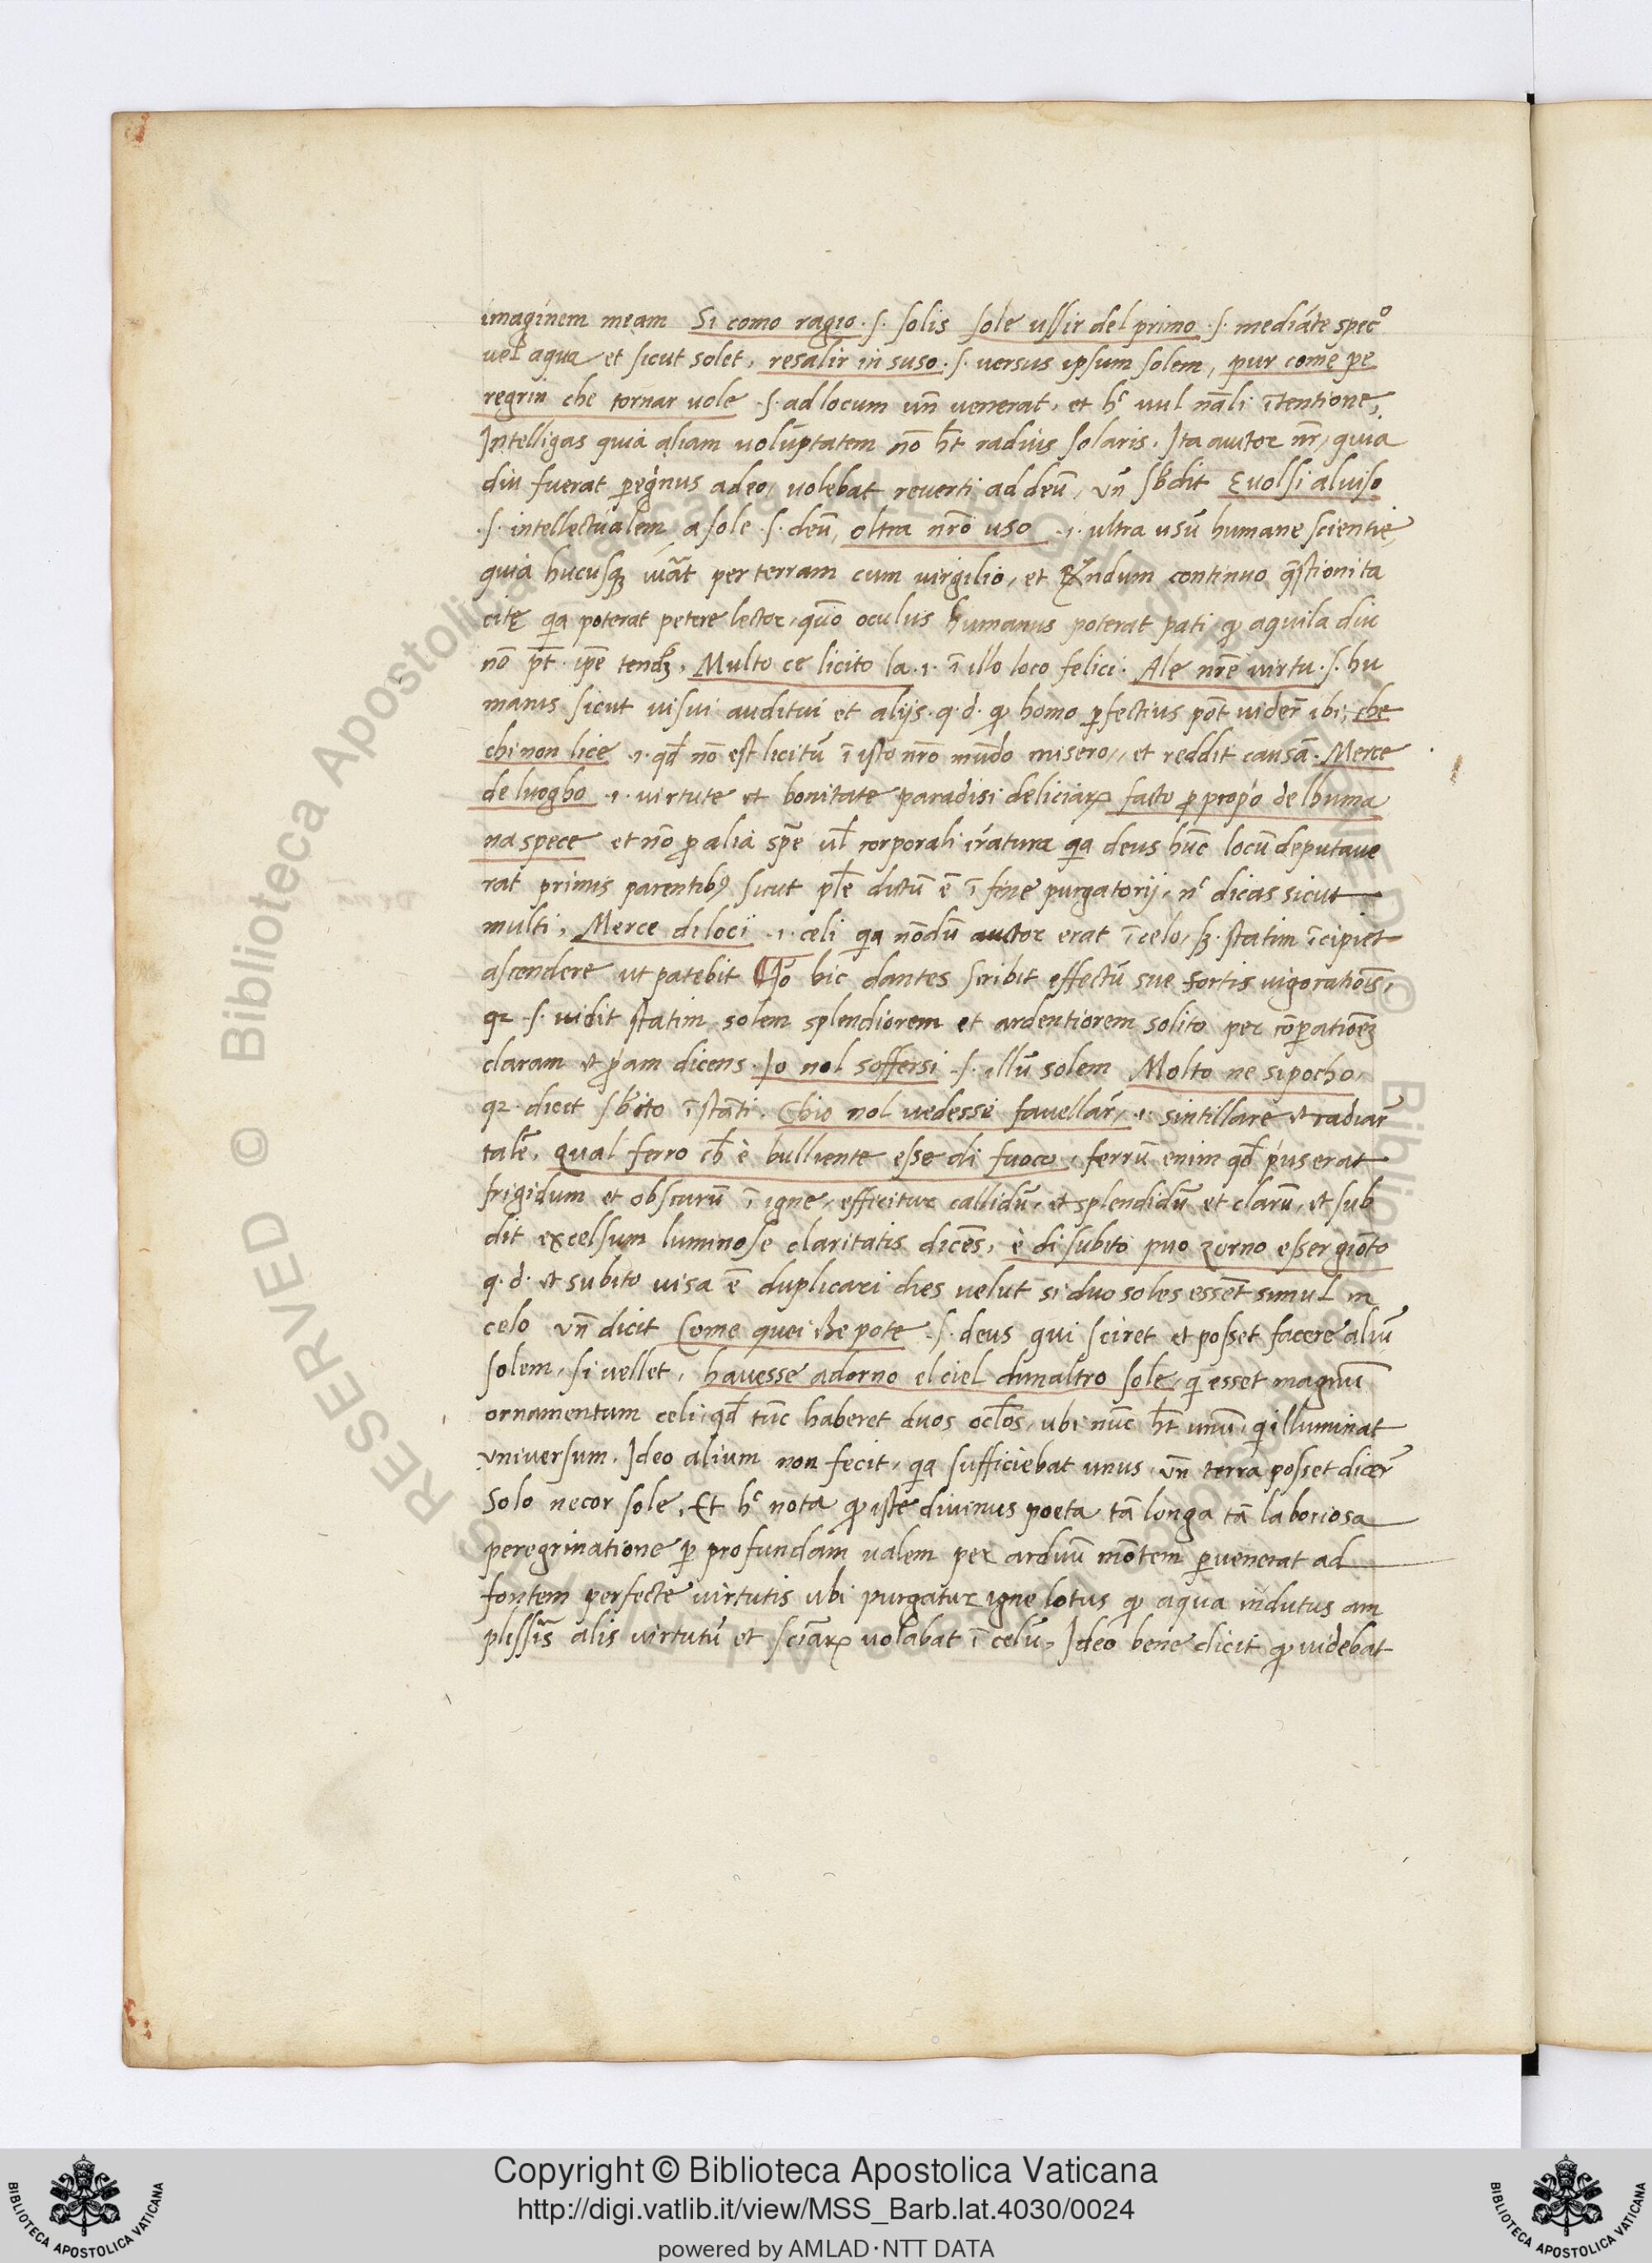 imaginem meam Si como ragio .s. solis sole ussir del primo .s. mediãte spec°
vel aqua et sicut solet, resalir in suso .s. versus ipsum solem, pur come pe
regrin che tornar vole .s. ad locum un̄ venerat, et h͛ vul nãli ĩtentione,
Intelligas quia aliam voluptatem nõ h̃t radius solaris. Ita auctor nr̃, quia
diu fuerat peg̃nus a deo, volebat reverti ad deũ, un̄ sb̃dit E volsi al viso
.s. intellectualem a sole .s. deũ, oltra nr̃o uso .i. ultra usũ humane scientie,
quia hucusq; per terram cum virgilio, et continuo q̃stioni ta
cite q̃a poterat petere lector, quõ oculus humanus poterat pati, qȝ aquila diu
nõ p̃t ip̃e tend̃, Multo ce licito la .i. ĩ illo loco felici. A le nr̃e virtu .s. hu
manis sicut visui auditui et alijs .q.d. qȝ homo p̱fectius põt vider̃ ibi, che
chi non lice .i. qd̃ nõ est licitũ ĩ isto nr̃o mũdo misero, et reddit causã. Merce
de luogho .i. virtute et bonitate paradisi deliciarꝝ facto p̱ propo de lhuma
na spece et nõ p̱ alia sp̃e vl̃ corporali cr̃atura q̃a deus hũc locũ deputave
rat primis parentibꝰ sicut pl̃e dictũ ẽ ĩ fine purgatorij, n͛ dicas sicut
multi, Merce di loci .i. celi q̃a nõdũ auctor erat ĩ celo, sȝ statim ĩcipiet
ascendere ut patebit Io hic dantes scribit effectũ sue fortis vigoratiõis,
qꝛ .s. vidit statim solem splendiorem et ardentiorem solito per cõparationeȝ
claram et p̱am dicens. Io nol soffersi .s. illũ solem Molto ne si pocho,
qꝛ dicit sb̃ito ĩstãti. Chio nol vedesse favellar̃, .i. sintillare et radiar̃
tale, qual ferro ch̃ è bulliente esse di fuoco, ferrũ enim qd̃ p̃us erat
frigidum et obscurũ ĩ igne, efficitur callidũ, et splendidũ et clarũ, et sub
dit excelsum luminose claritatis dicẽs, è di subito puo zorno esser giõto
q.d. et subito visa ẽ duplicari dies velut si duo soles essẽt simul in
celo un̄ dicit Come quei che pote .s. deus qui sciret et posset facere aliũ
solem, si vellet, havesse adorno el ciel dunaltro sole, q̃ esset magnũ
ornamentum celi, qd̃ tũc haberet duos ocl̃os, ubi nũc h̃t unũ, q̃ illuminat
universum. Ideo alium non fecit, q̃a sufficiebat unus, un̄ terra posset dicer̃
Solo necor sole, Et h͛ nota qȝ iste divinus poeta tã longa tã laboriosa
peregrinatione p̱ profundam valem per arduũ mõtem p̱venerat ad
fontem perfecte virtutis ubi purgatur igne lotus qȝ aqua indutus am
plissĩs alis virtutũ et sciãrꝝ volabat ĩ celũ, Ideo bene dicit qȝ videbat
Copyright © Biblioteca Apostolica Vaticana
http://digi.vatlib.it/view/MSS_Barb.lat.4030/0024
powered by AMLAD·NTT DATA
BIBLIOTECA APOSTOLICA VATICANA
BIBLIOTECA APOSTOLICA VATICANA